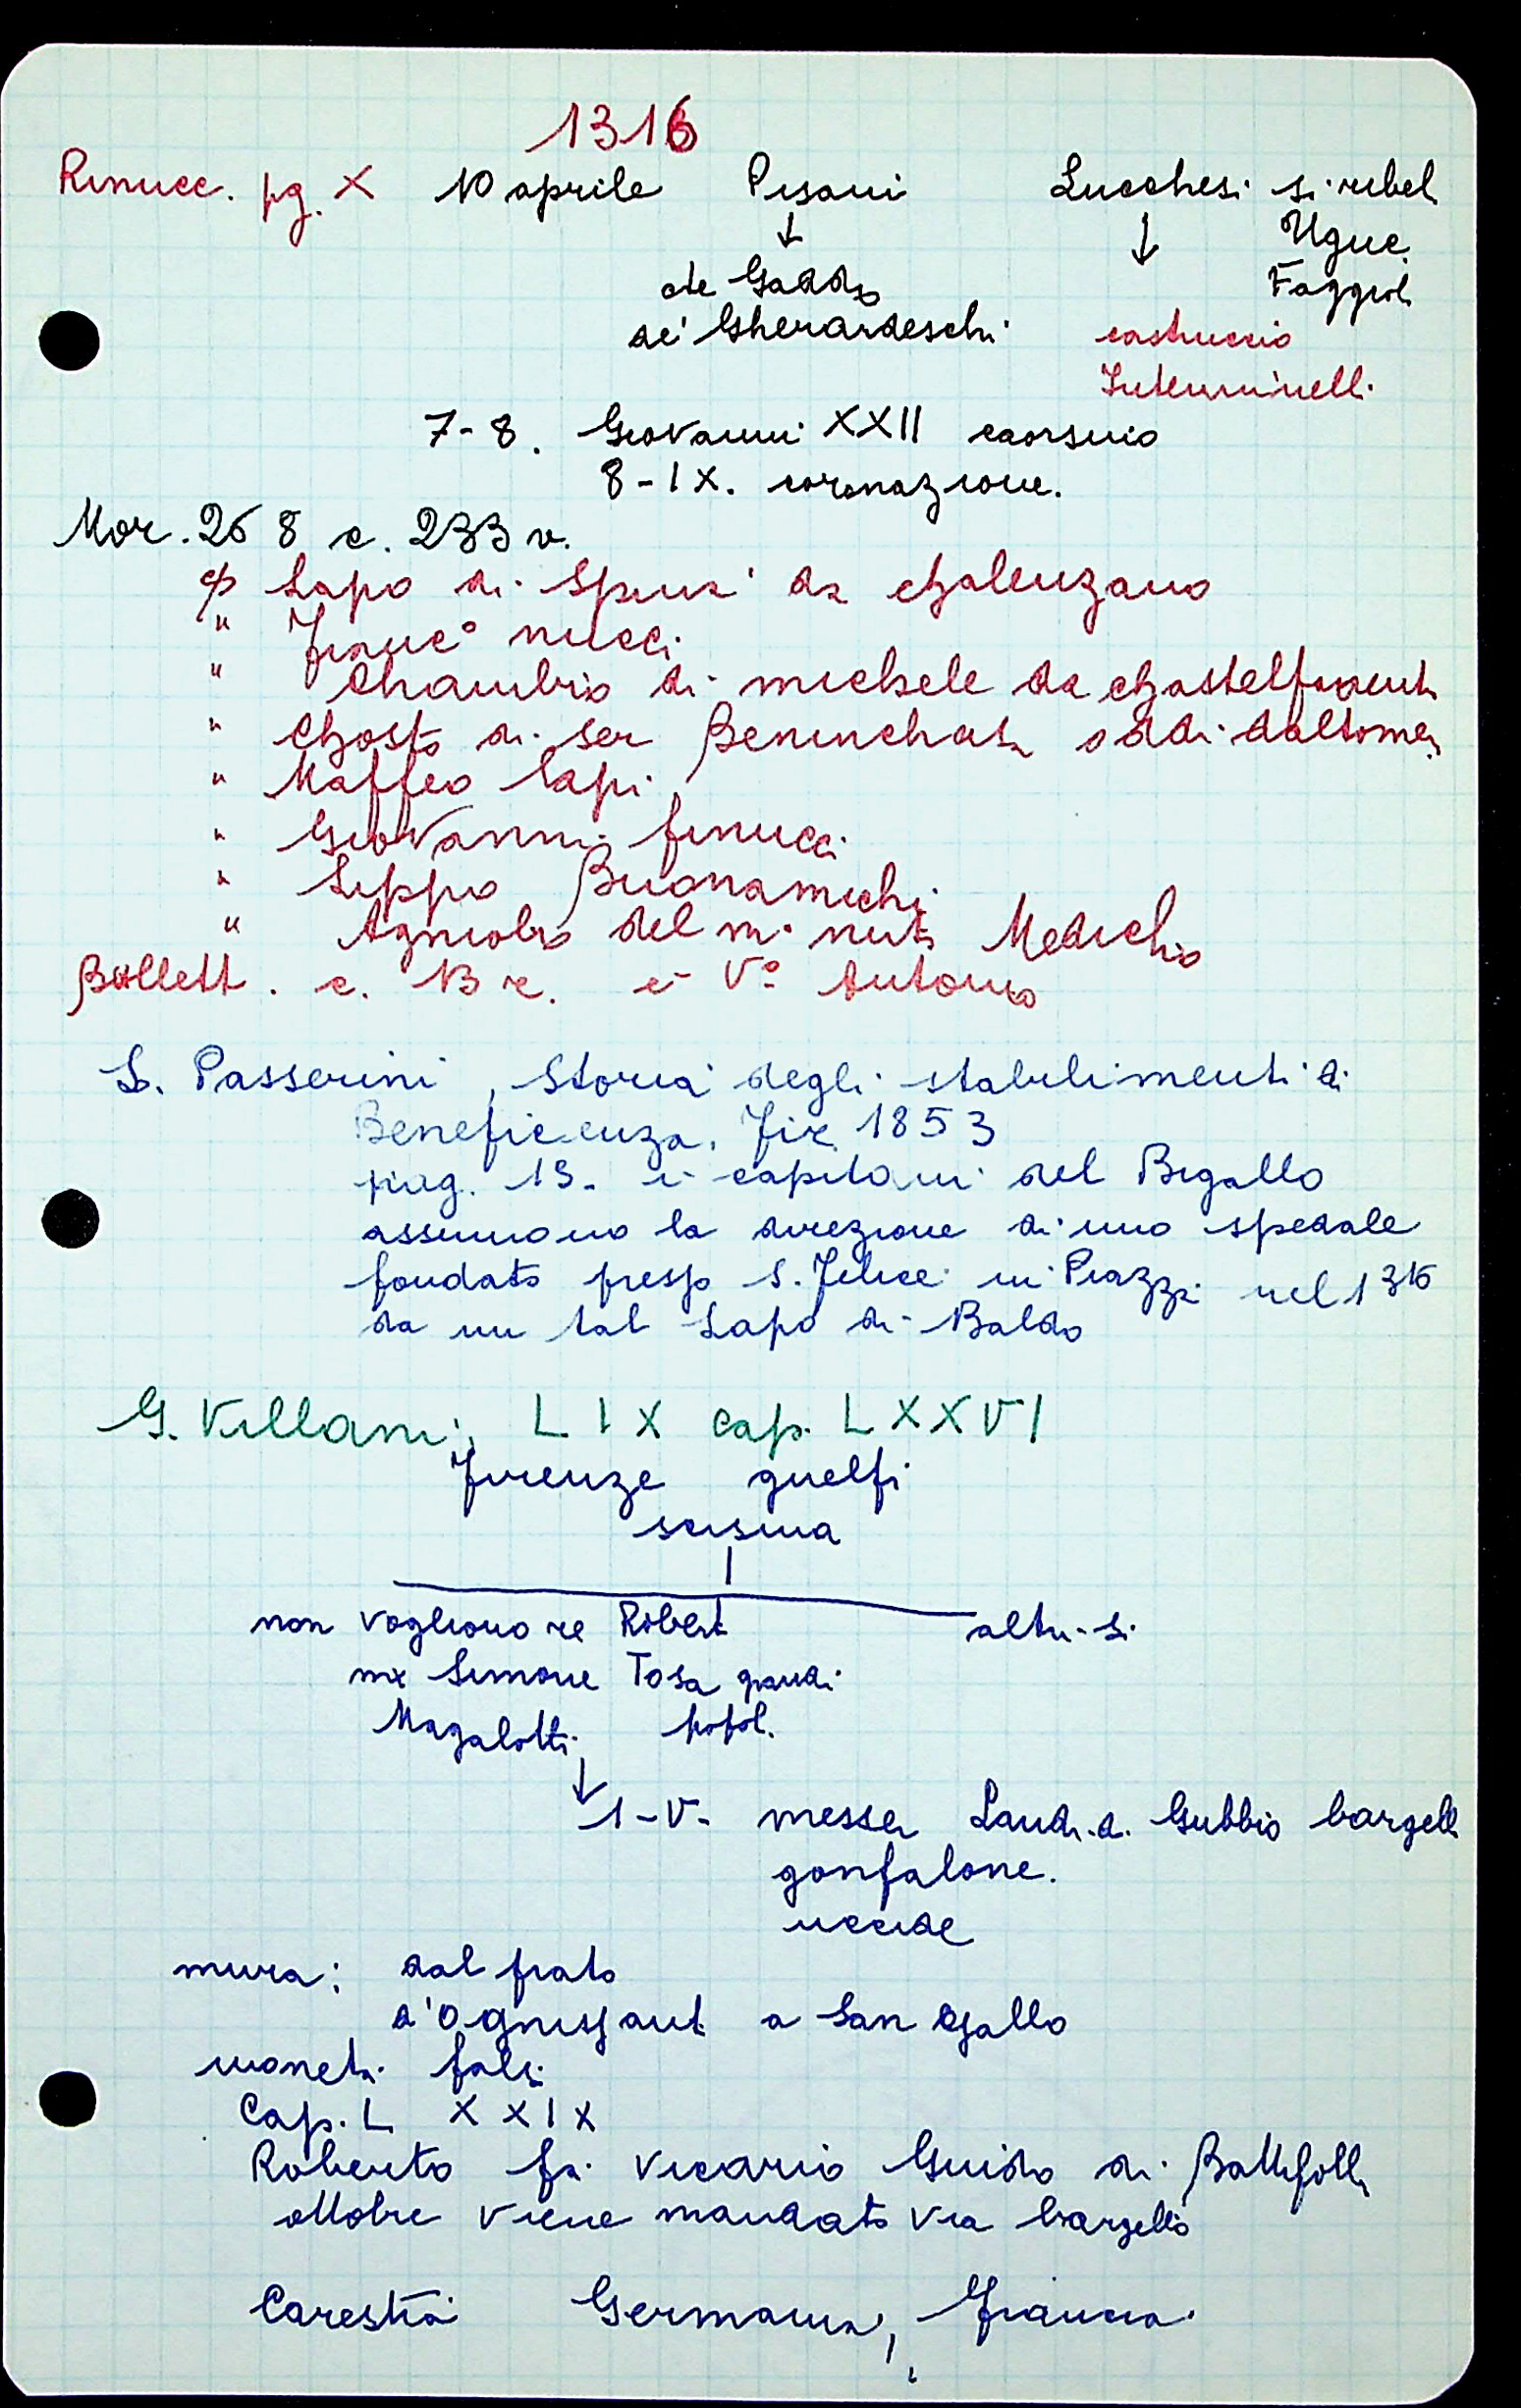 1316
Rinucc. pg. X 10 aprile Pisani Lucchesi si ribel
↓ ↓ Uguc.
de Gaddo Faggiol
dei Gherardeschi castruccio
Interminelli
7-8. Giovanni XXII caorsino
8-IX. coronazione.
Mor. 268 c. 233 v.
Lapo di Spinz da chalenzano
" franc° nucci
" Chambio di michele da chastelfiorent
" Chosto di ser Beninchasa oddi daltomen
" Maffeo lapi
" Giovanni finucci
" Lippo Buonamichi
" Agniolo del m° nuto Medicho
Bollett. c. 13 r. e V° Antonio
L. Passerini, Storia degli stabilimenti di
Beneficenza, Fir. 1853
pag. 13. i capitani del Bigallo
assumono la direzione di uno spedale
fondato presso S. Felice in Piazza nel 1316
da un tal Lapo di Baldo
G. Villani, L IX cap. LXXVI
Firenze guelfi
scisma
non vogliono re Robert altri si
mr Simone Tosa grandi
Magalotti popol.
↓
1-V- messer Land. d. Gubbio bargell
gonfalone.
uccide
mura: dal prato
d'Ognissant a San Ghallo
moneta falsa
Cap. L XXIX
Roberto fa vicario Guido di Battifolle
ottobre viene mandato via bargello
Carestia Germania, Francia